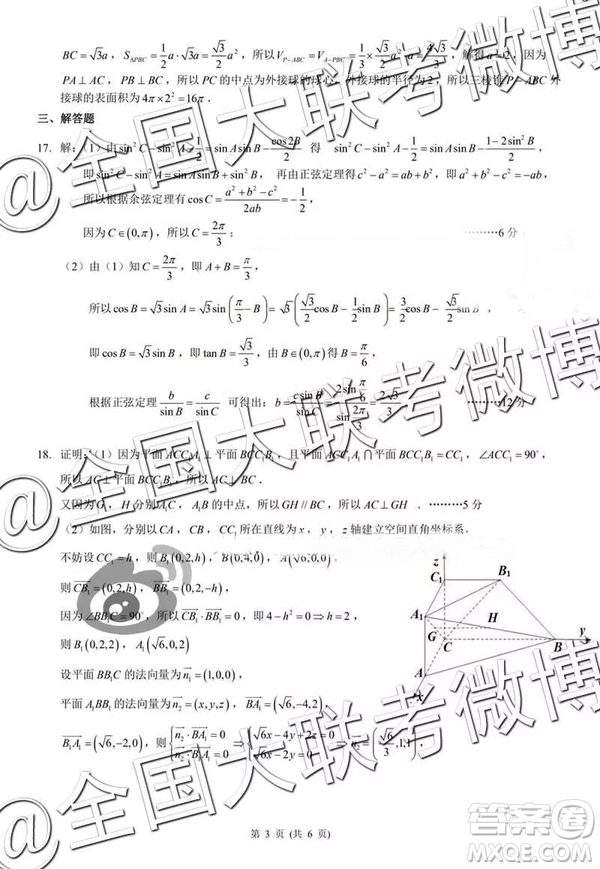 BC = √3a，S△PBC = 1/2 a·√3a = √3/2 a²，所以V_{P-ABC} = V_{A-PBC} = 1/3 × √3/2 a² · a = 4√3/3，解得 a = 2，因为
PA⊥AC，PB⊥BC，所以PC的中点为外接球的球心，外接球的半径为2，所以三棱锥P-ABC外
接球的表面积为4π×2²=16π．
三、解答题
17. 解：（1）由sin²C − sin²A − 1/2 = sin A sin B − cos2B/2 得 sin²C − sin²A − 1/2 = sin A sin B − (1−2sin²B)/2，
即sin²C − sin²A = sin A sin B + sin²B，再由正弦定理有c² − a² = ab + b²，
所以根据余弦定理有cos C = (a² + b² − c²)/2ab = −1/2，
因为C∈(0,π)，所以C = 2π/3； ………6分
（2）由（1）知C = 2π/3，即A + B = π/3，
所以cos B = √3 sin A = √3 sin(π/3 − B) = √3(√3/2 cos B − 1/2 sin B) = 3/2 cos B − √3/2 sin B，
即cos B = √3 sin B，即tan B = √3/3，由B∈(0,π)得B = π/6，
根据正弦定理 b/sin B = c/sin C 可得出：b = c sin B/sin C = 2sin π/6 / sin 2π/3 ………12分
18. 证明：（1）因为平面ACC₁A₁⊥平面BCC₁B₁，且平面ACC₁A₁∩平面BCC₁B₁=CC₁，∠ACC₁=90°，
所以AC⊥平面BCC₁B₁，所以AC⊥BC．
又因为G，H分别A₁C，A₁B的中点，所以GH∥BC，所以AC⊥GH．………5分
（2）如图，分别以CA，CB，CC₁所在直线为x，y，z轴建立空间直角坐标系，
不妨设CC₁=h，则B₁(0,2,h)，B(0,4,0)，A(√6,0,0)
则CB₁=(0,2,h)，BB₁(0,2,-h)，
因为∠BB₁C=90°，所以CB₁·BB₁=0，即4−h²=0⇒h=2，
则B₁(0,2,2)，A₁(√6,0,2)
设平面BB₁C的法向量为n₁=(1,0,0)，
平面A₁BB₁的法向量为n₂=(x,y,z)，BA₁=(√6,−4,2)
B₁A₁=(√6,−2,0)，则{n₂·BA₁=0 n₂·B₁A₁=0 ⇒{√6x−4y+2z=0 √6x−2y=0 ⇒n₂=(√6/3,1,1)，
z
C₁
B₁
A₁
H
G
C
B
y
A
x
第 3 页（共 6 页）
@全国大联考微博
@全国大联考微博
@全国大联考微博
答案圈
MXQE.COM